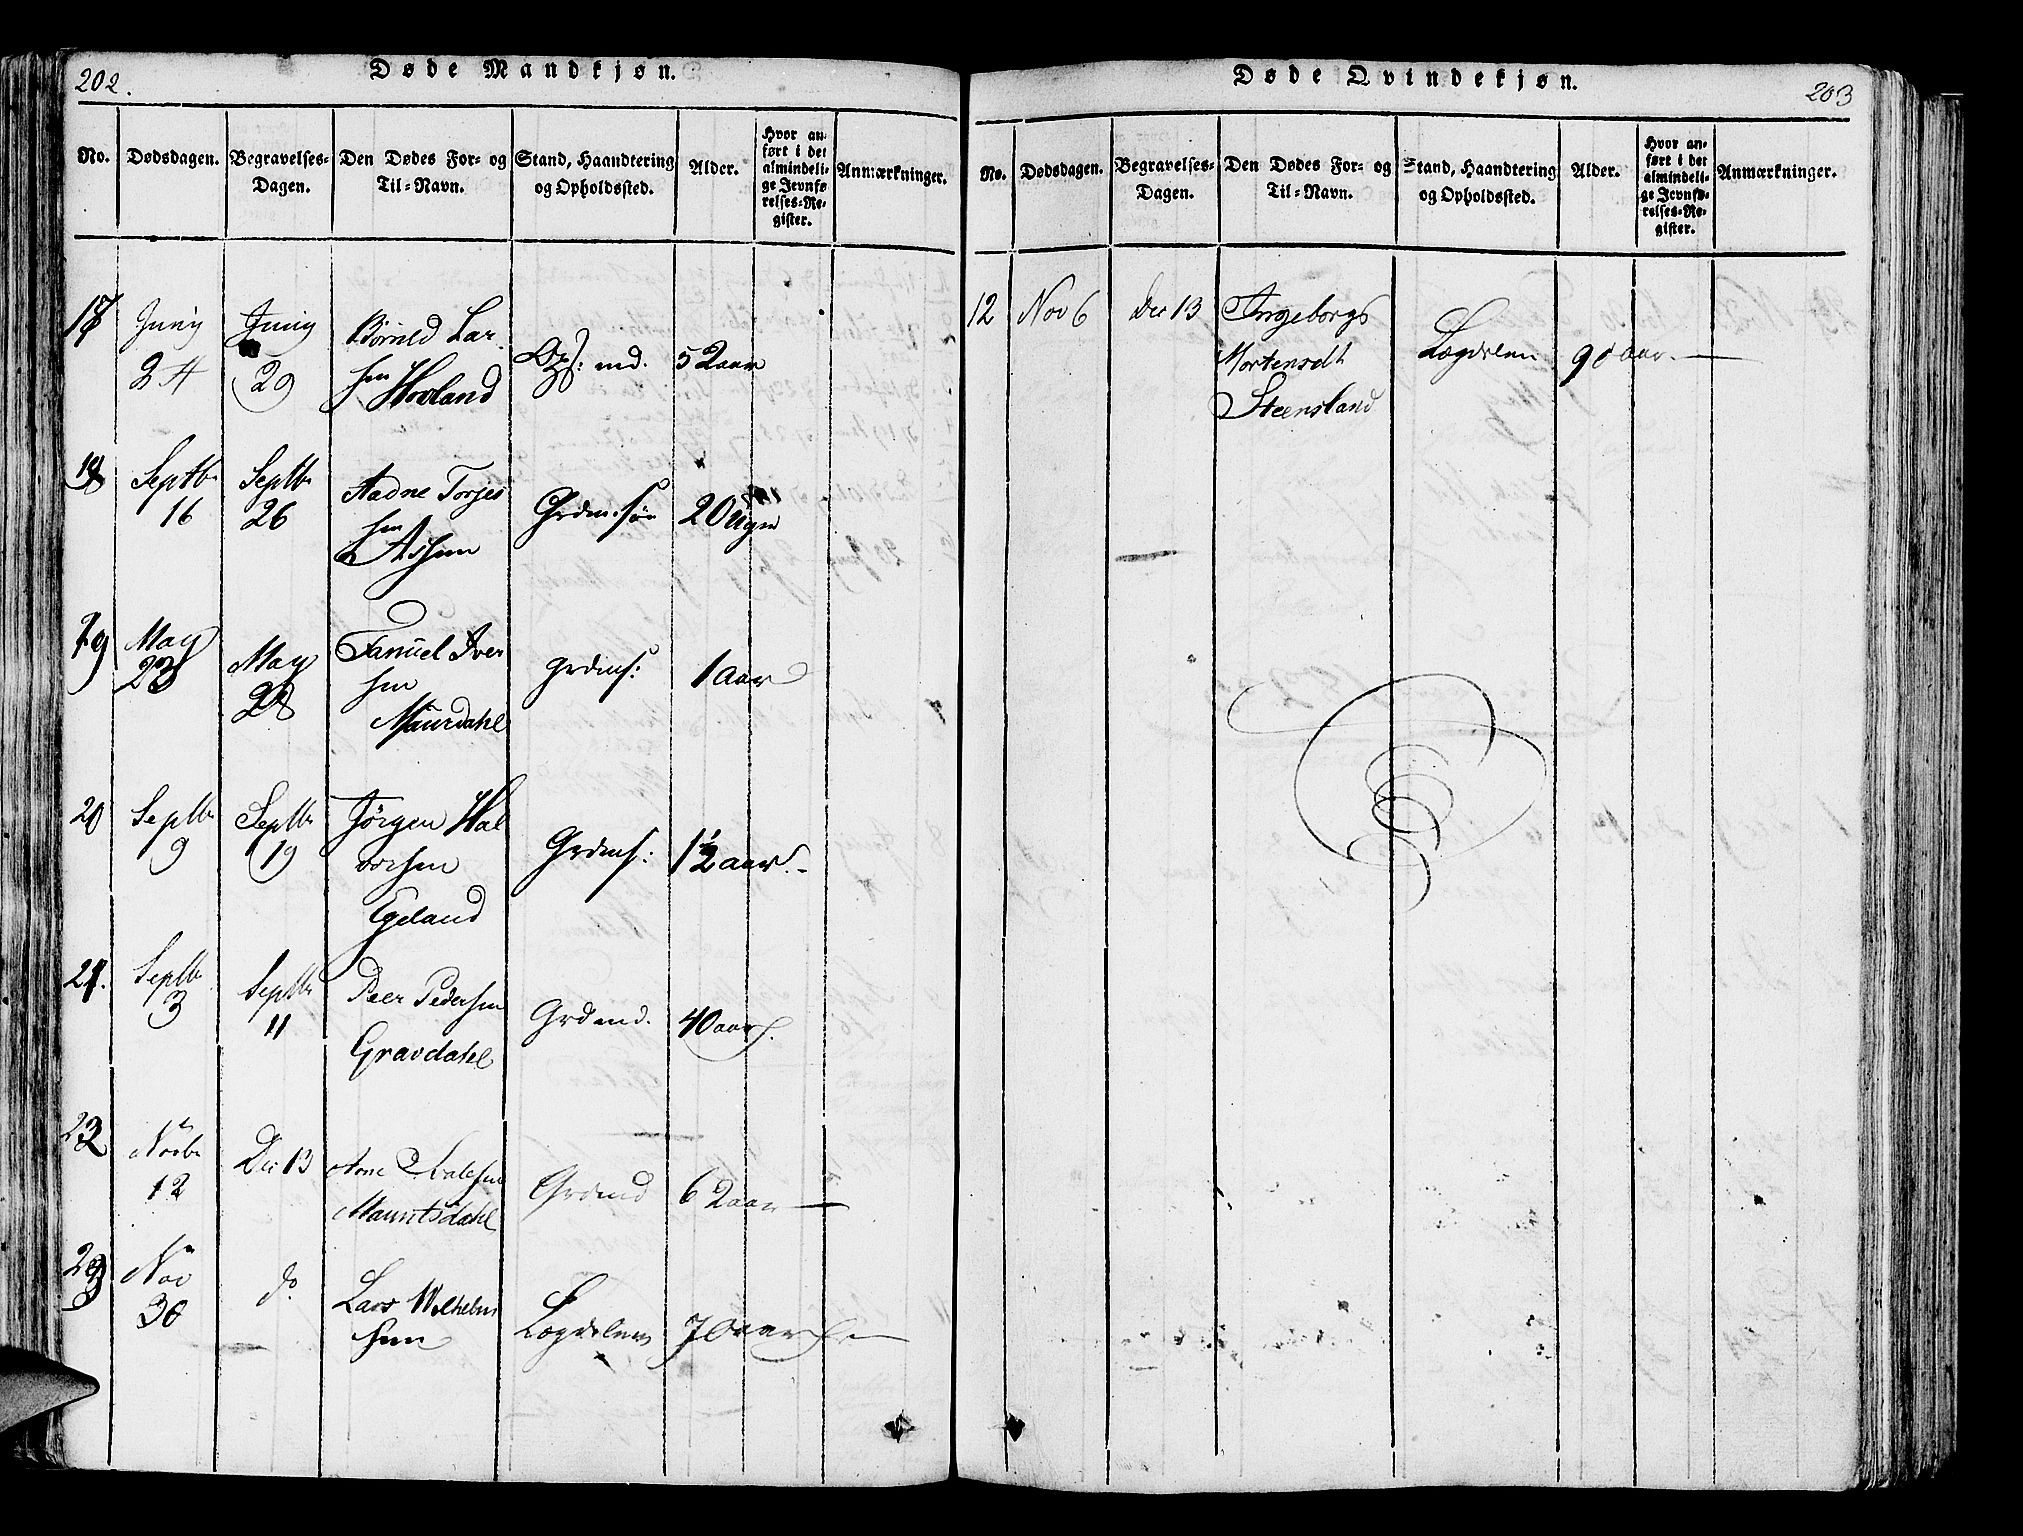 202.
Døde Mandkjøn.
No.
Dødsdagen.
Begravelses-
Dagen.
Den Dødes For- og
Til-Navn.
Stand, Haandtering
og Opholdssted.
Alder.
Hvor an-
ført i det
almindeli-
ge Jevnfø-
relses-Re-
gister.
Anmærkninger.
17
Juny
24
Juny
29
Børild Lar-
sen Hovland
md.
52 aar
18
Septbr
16
Septbr
26
Aadne Torjes
sen
Assen
Grdm. søn
20 Uger
19
May
23
May
28
Samuel Iver
sen
Maurdahl
grdms:
1 Aar
20
Septbr
9
Septbr
19
Jörgen Hal
vorsen
Egeland
Grdms:
1½ aar.
21.
Septbr
3
Septbr
11
Peer Pedersen
Gravdahl
Grdmd.
40 aar.
22
Novbr
12
Dec 13
Arne
Mauritsdahl
Grdmd
62 aar —
23
Nov
30
do.
Lars Wilhelm
sen
Lægdslem
70 aar —
203
Døde Qvindekjøn.
No.
Dødsdagen.
Begravelses-
Dagen.
Den Dødes For- og
Til-Navn.
Stand, Haandtering
og Opholdssted.
Alder.
Hvor an-
ført i det
almindeli-
ge Jevnfø-
relses-Re-
gister.
Anmærkninger.
12
Nov 6
Dec 13
Ingeborg
Mortensdt
Steensland
Lægdslem
90 aar. —